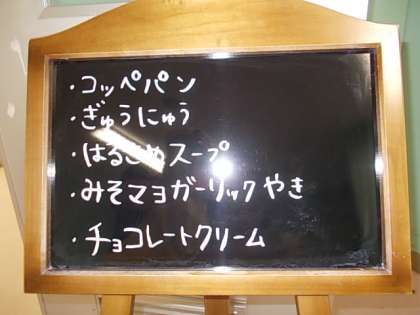 ・コッペパン
・ぎゅうにゅう
・はるさめスープ
・みそマヨガーリックやき
・チョコレートクリーム